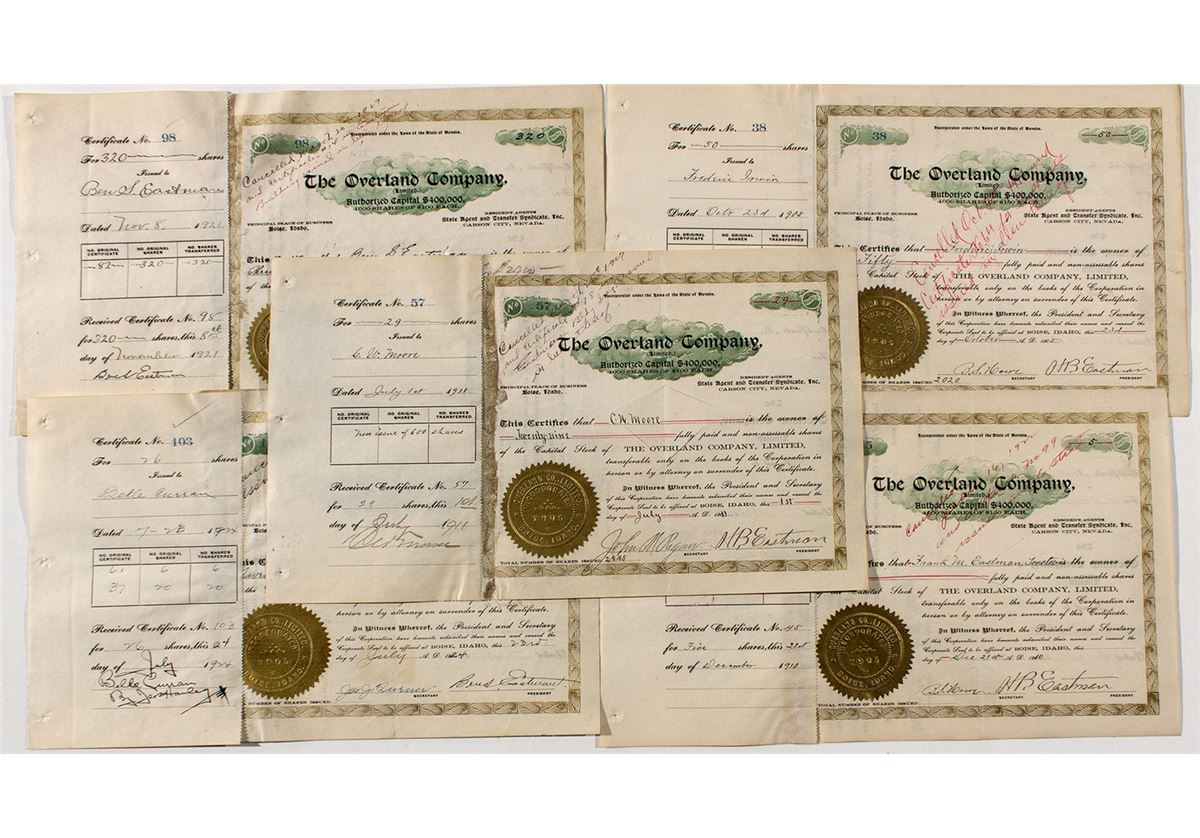 Certificate No. 98
For 320 shares
Issued to
Ben S. Eastman
Dated Nov. 8, 1921
NO. ORIGINAL CERTIFICATE
NO. ORIGINAL SHARES
NO. SHARES TRANSFERRED
82 320 320
Received Certificate No. 98
for 320 shares, this 8th
day of November 1921
Ben S Eastman
No 98
320
Incorporated under the Laws of the State of Nevada.
The Overland Company,
(Limited.)
Authorized Capital $400,000.
4000 SHARES OF $100 EACH.
PRINCIPAL PLACE OF BUSINESS
Boise, Idaho.
RESIDENT AGENTS
State Agent and Transfer Syndicate, Inc.
CARSON CITY, NEVADA.
Certificate No. 38
For 50 shares
Issued to
Frederic Irwin
Dated Octr 23d 1908
NO. ORIGINAL CERTIFICATE
NO. ORIGINAL SHARES
NO. SHARES TRANSFERRED
38
50
Incorporated under the Laws of the State of Nevada.
The Overland Company,
(Limited.)
Authorized Capital $400,000.
4000 SHARES OF $100 EACH.
PRINCIPAL PLACE OF BUSINESS
Boise, Idaho.
RESIDENT AGENTS
State Agent and Transfer Syndicate, Inc.
CARSON CITY, NEVADA.
This Certifies that Frederic Irwin is the owner of
Fifty fully paid and non-assessable shares
Capital Stock of THE OVERLAND COMPANY, LIMITED,
transferable only on the books of the Corporation in
person or by attorney on surrender of this Certificate.
In Witness Whereof, the President and Secretary
of this Corporation have hereunto subscribed their names and caused the
Corporate Seal to be affixed at BOISE, IDAHO, this 23d
day of October A. D. 1908
SECRETARY
HB Eastman
PRESIDENT
NUMBER OF SHARES ISSUED 2020
Certificate No. 57
For 29 shares
Issued to
C. W. Moore
Dated July 1st 1911
NO. ORIGINAL CERTIFICATE
NO. ORIGINAL SHARES
NO. SHARES TRANSFERRED
New issue of 600 shares
Received Certificate No. 57
for 29 shares, this
day of July 1911
C W Moore
No 57
29
Incorporated under the Laws of the State of Nevada.
The Overland Company,
(Limited.)
Authorized Capital $400,000.
4000 SHARES OF $100 EACH.
PRINCIPAL PLACE OF BUSINESS
Boise, Idaho.
RESIDENT AGENTS
State Agent and Transfer Syndicate, Inc.
CARSON CITY, NEVADA.
This Certifies that C. W. Moore is the owner of
Twenty-nine fully paid and non-assessable shares
of the Capital Stock of THE OVERLAND COMPANY, LIMITED,
transferable only on the books of the Corporation in
person or by attorney on surrender of this Certificate.
In Witness Whereof, the President and Secretary
of this Corporation have hereunto subscribed their names and caused the
Corporate Seal to be affixed at BOISE, IDAHO, this 1st
day of July A. D. 1911
John M Regan
SECRETARY
HB Eastman
PRESIDENT
TOTAL NUMBER OF SHARES ISSUED
Certificate No. 103
For 26 shares
Issued to
Belle Curran
Dated 7-23 1924
NO. ORIGINAL CERTIFICATE
NO. ORIGINAL SHARES
NO. SHARES TRANSFERRED
61 6 6
37 20 20
Received Certificate No. 103
for 26 shares, this 24
day of July 1924
Belle Curran
person or by attorney on surrender of this Certificate.
In Witness Whereof, the President and Secretary
of this Corporation have hereunto subscribed their names and caused the
Corporate Seal to be affixed at BOISE, IDAHO, this 23rd
day of July A. D. 1924
SECRETARY
PRESIDENT
NUMBER OF SHARES ISSUED
5
Incorporated under the Laws of the State of Nevada.
The Overland Company,
(Limited.)
Authorized Capital $400,000.
4000 SHARES OF $100 EACH.
RESIDENT AGENTS
State Agent and Transfer Syndicate, Inc.
CARSON CITY, NEVADA.
that Frank M. Eastman, Trustee is the owner of
fully paid and non-assessable shares
Capital Stock of THE OVERLAND COMPANY, LIMITED,
transferable only on the books of the Corporation in
person or by attorney on surrender of this Certificate.
In Witness Whereof, the President and Secretary
of this Corporation have hereunto subscribed their names and caused the
Corporate Seal to be affixed at BOISE, IDAHO, this
day of Dec 21st A. D. 1910
Received Certificate No. 45
for Five shares, this 21st
day of December 1910
SECRETARY
HB Eastman
PRESIDENT
TOTAL NUMBER OF SHARES ISSUED